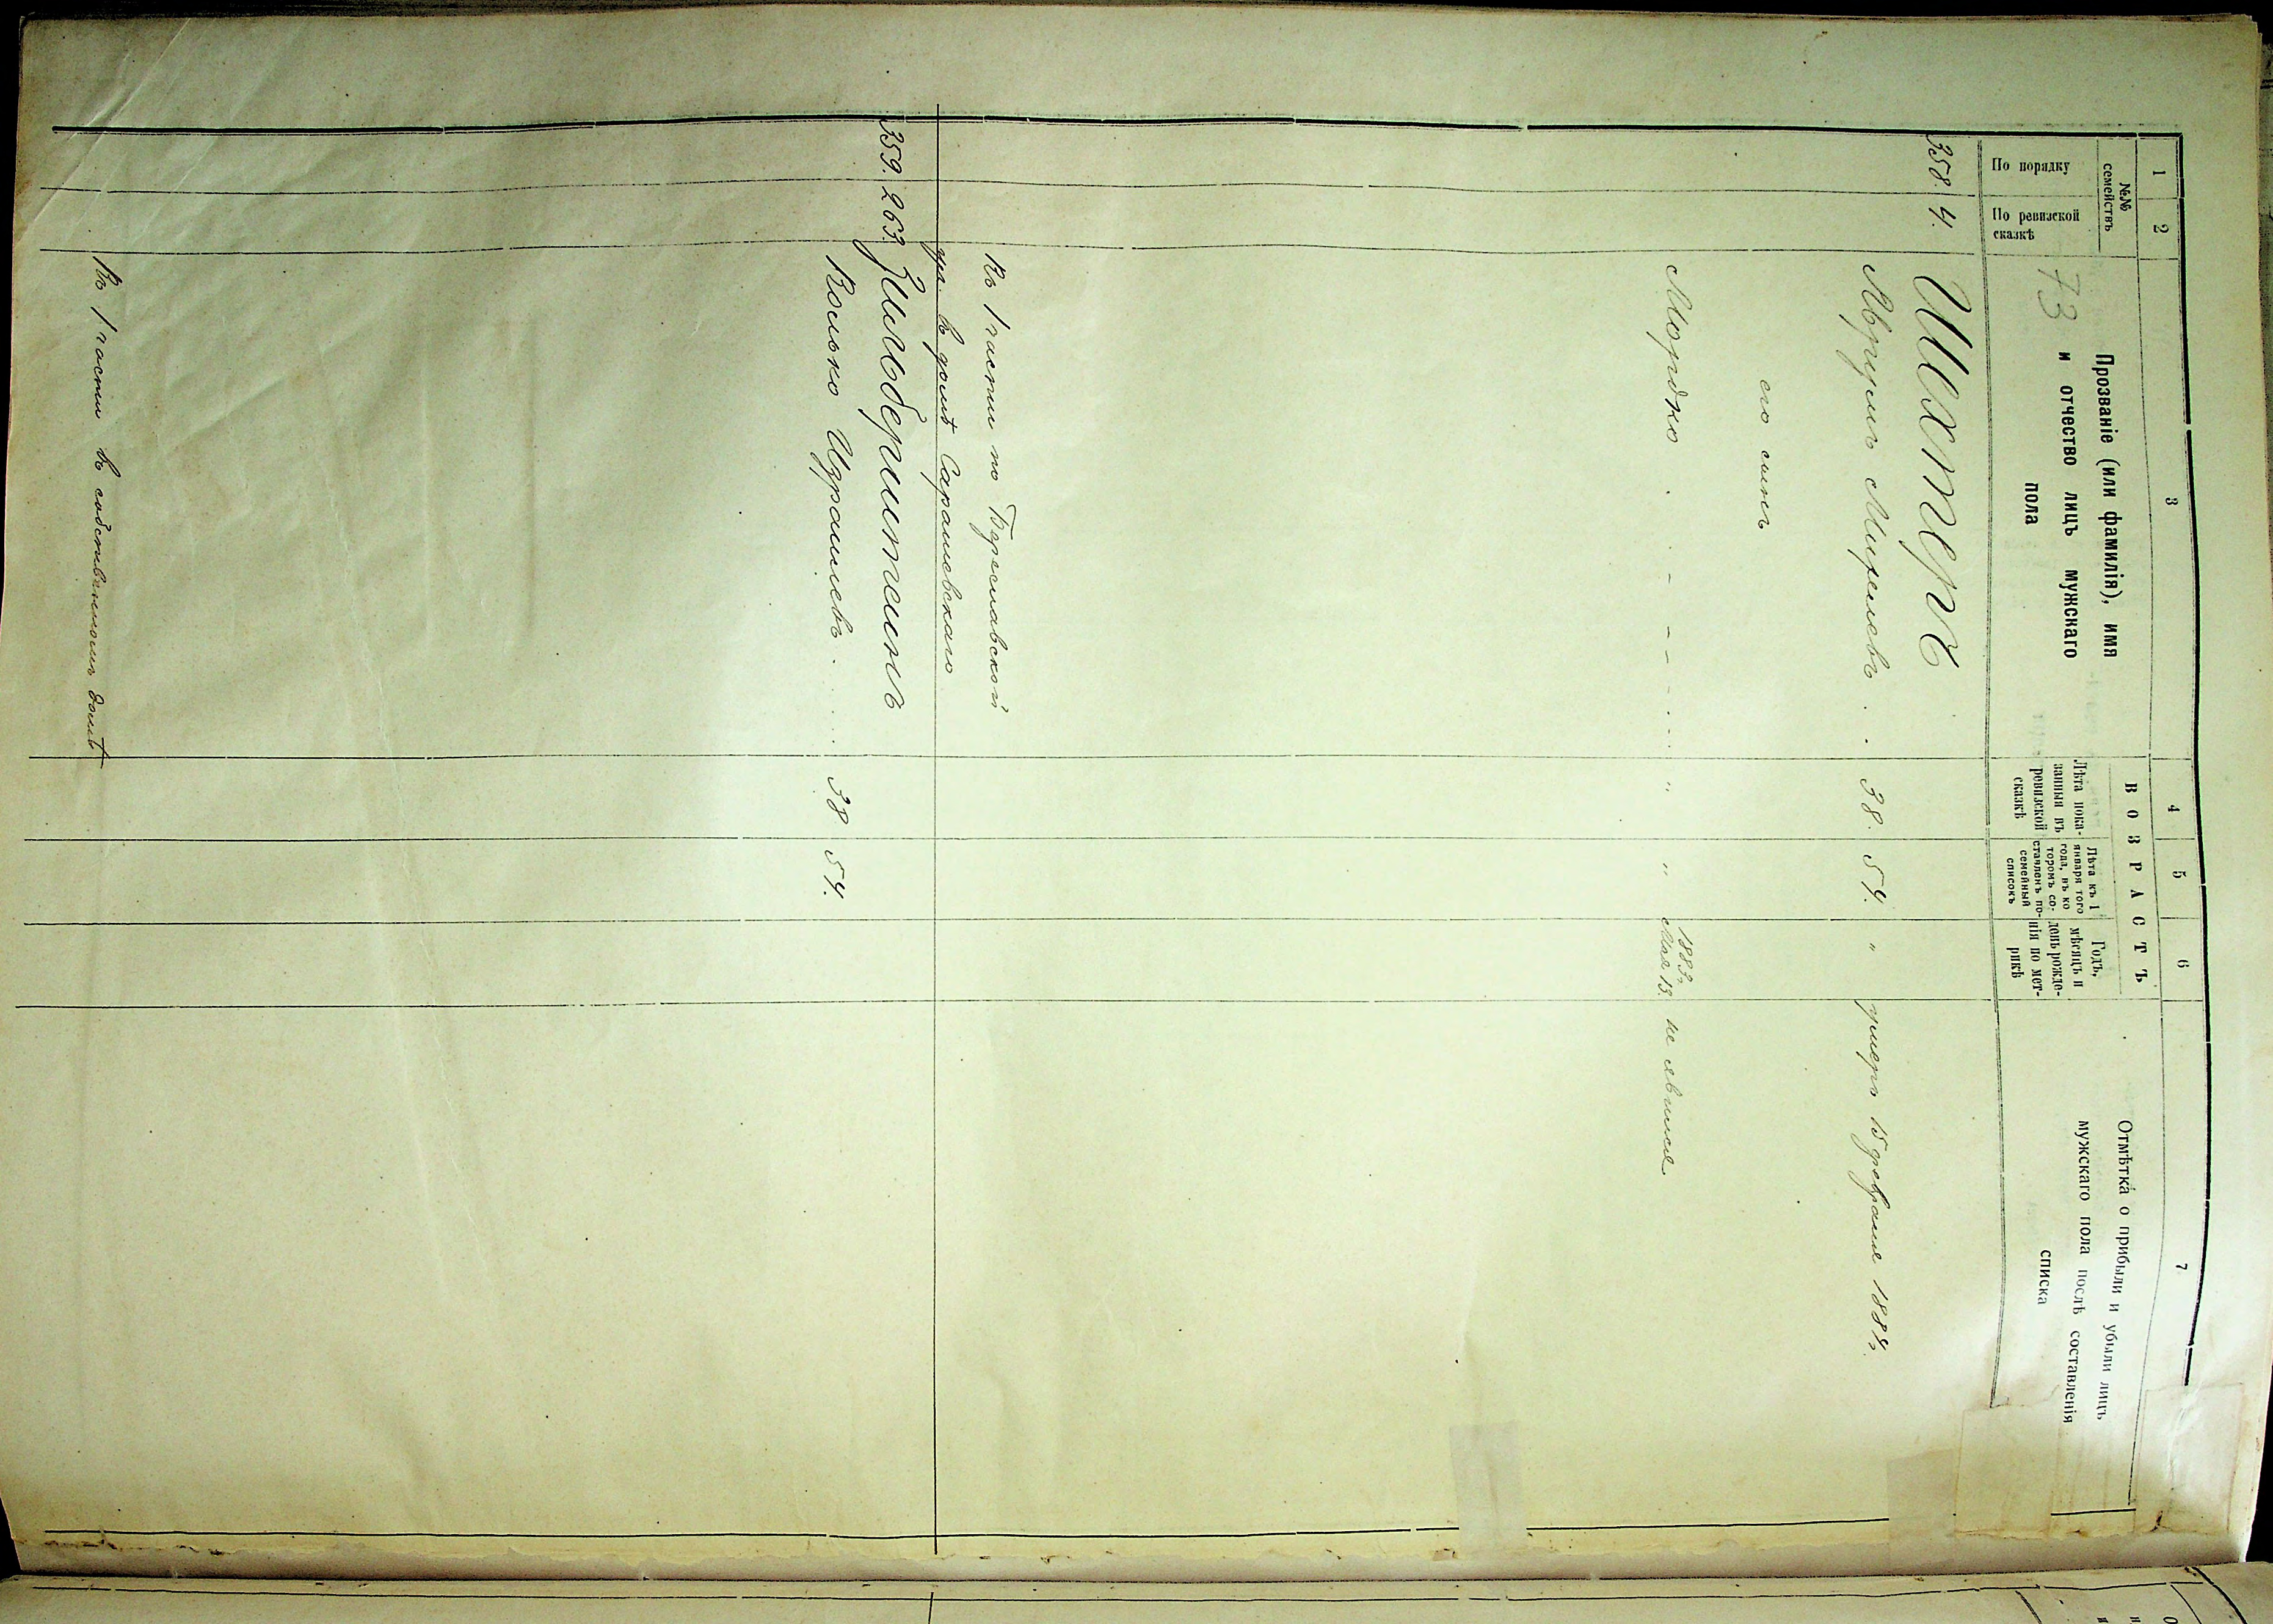 1 2 3 4 5 6 7
№№ семействъ
По порядку
По ревизской сказкѣ
Прозваніе (или фамилія), имя
и отчество лицъ мужскаго
пола
73
ВОЗРАСТЪ
Лѣта пока-
занныя въ
ревизской
сказкѣ
Лѣта къ 1
января того
года, въ ко
торомъ со-
ставленъ по-
семейный
списокъ
Годъ,
мѣсяцъ и
день рожде-
нія по мет-
рикѣ
Отмѣтка о прибыли и убыли лицъ
мужскаго пола послѣ составленія
списка
358. 4. Шехтеръ
Аврумъ Михелевъ . . 38. 54. " умеръ 15 февраля 1884г.
его сынъ
Мордко . . - - - . . . . " " 1883г. Мая 13. не явился
Въ 1 части по Береславской
ул. въ домѣ Сарашевскаго
359. 263. Зильберштейнъ
Волько Израилевъ . . . . 38 54.
Въ 1 части въ собственномъ домѣ